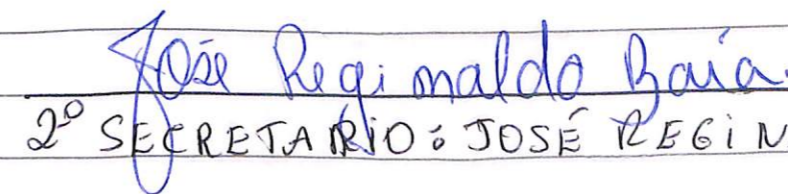 José Reginaldo Baía.
2º SECRETARIO: JOSÉ REGIN